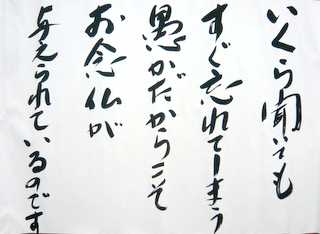 いくら聞いても
すぐ忘れてしまう
愚かだからこそ
お念仏が
与えられているのです